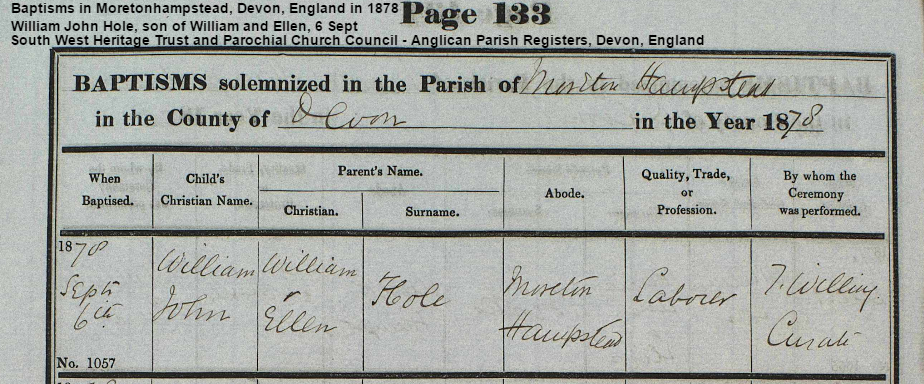 Baptisms in Moretonhampstead, Devon, England in 1878
Page 133
William John Hole, son of William and Ellen, 6 Sept
South West Heritage Trust and Parochial Church Council - Anglican Parish Registers, Devon, England
BAPTISMS solemnized in the Parish of Moreton Hampstead
in the County of Devon in the Year 1878
When Baptised.
Child's Christian Name.
Parent's Name.
Christian.
Surname.
Abode.
Quality, Trade, or Profession.
By whom the Ceremony was performed.
1878
Septr
6th
No. 1057
William
John
William
&
Ellen
Hole
Moreton
Hampstead
Labourer
T. Willing
Curate